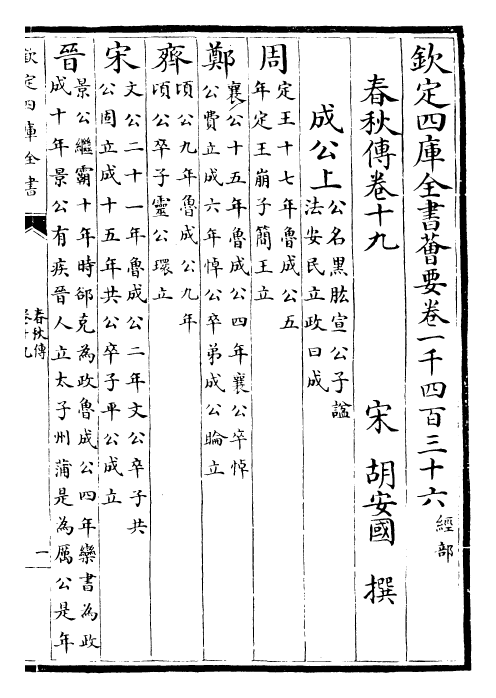 欽定四庫全書薈要卷一千四百三十六 經部
春秋傳卷十九
宋 胡安國 撰
成公上 公名黑肱宣公子諡
法安民立政曰成
周 定王十七年魯成公五
年定王崩子簡王立
鄭 襄公十五年魯成公四年襄公卒悼
公費立成六年悼公卒弟成公睔立
齊 頃公九年魯成公九年
頃公卒子靈公環立
宋 文公二十一年魯成公二年文公卒子共
公固立成十五年共公卒子平公成立
晉 景公繼霸十年時郤克為政魯成公四年欒書為政
成十年景公有疾晉人立太子州蒲是為厲公是年
欽定四庫全書
春秋傳
卷十九
一